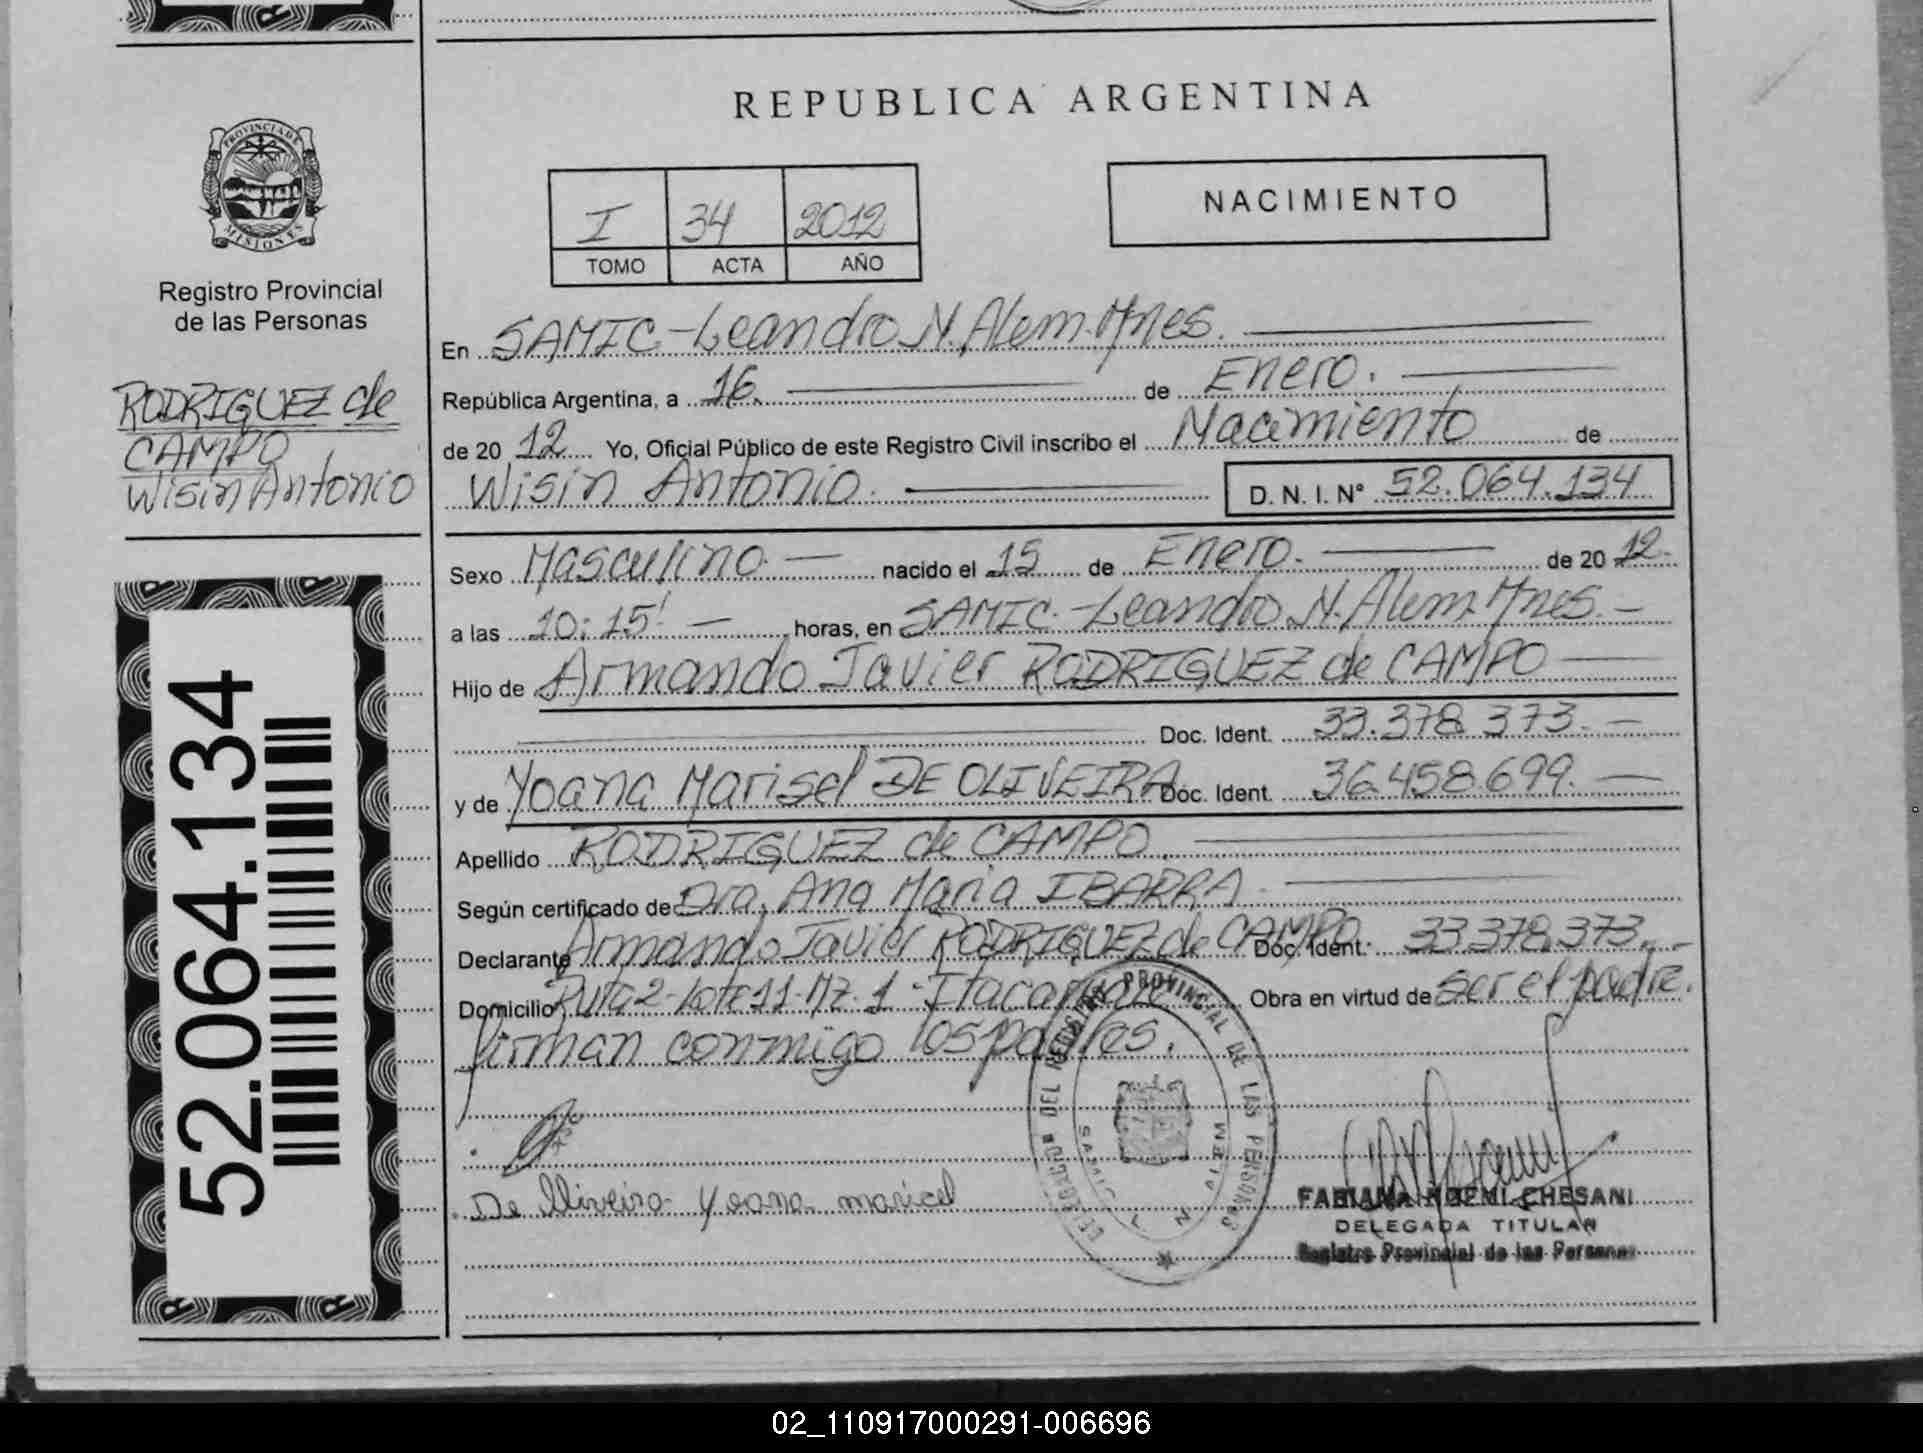 REPUBLICA ARGENTINA
PROVINCIA DE MISIONES
Registro Provincial
de las Personas
RODRIGUEZ de
CAMPO
Wisin Antonio
52.064.134
I 34 2012
TOMO ACTA AÑO
NACIMIENTO
En SAMIC - Leandro N. Alem. Mnes.
República Argentina, a 16. de Enero.
de 2012 Yo, Oficial Público de este Registro Civil inscribo el Nacimiento de
Wisin Antonio. D. N. I. Nº 52.064.134
Sexo Masculino nacido el 15 de Enero. de 2012.
a las 10:15' horas, en SAMIC. - Leandro N. Alem. Mnes.
Hijo de Armando Javier RODRIGUEZ de CAMPO
Doc. Ident. 33.378.373.
y de Yoana Marisel DE OLIVEIRA Doc. Ident. 36.458.699.
Apellido RODRIGUEZ de CAMPO.
Según certificado de Dra. Ana Maria IBARRA.
Declarante Armando Javier RODRIGUEZ de CAMPO Doc. Ident. 33.378.373.
Domicilio Ruta 2 - Lote 11 - Mz. 1 - Obra en virtud de ser el padre.
firman conmigo los padres.
De Oliveira Yoana maricel
DELEGACION DEL REGISTRO PROVINCIAL DE LAS PERSONAS
FABIANA NOEMI CHESANI
DELEGADA TITULAR
Registro Provincial de las Personas
02_110917000291-006696